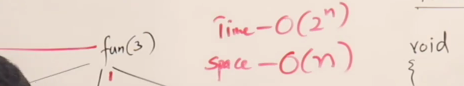 fun(3)
Time - O(2ⁿ)
Space - O(n)
void
{